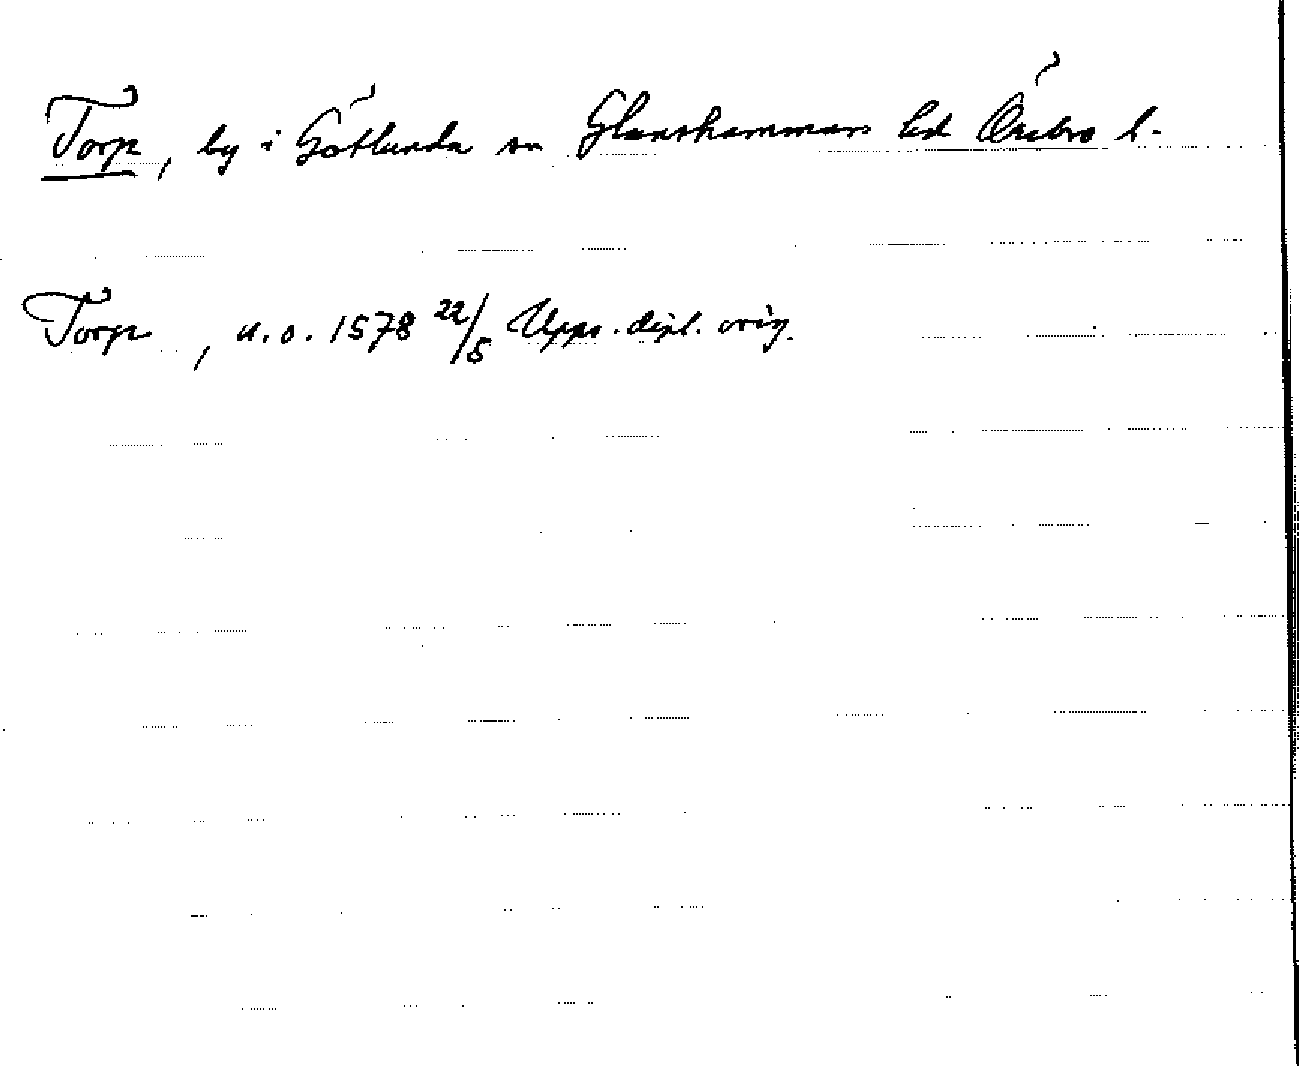 Torp, by i Götlunda sn Glanshammars hd Örebro l.
Torp, u.o. 1578 22/5 Upps. dipl. orig.